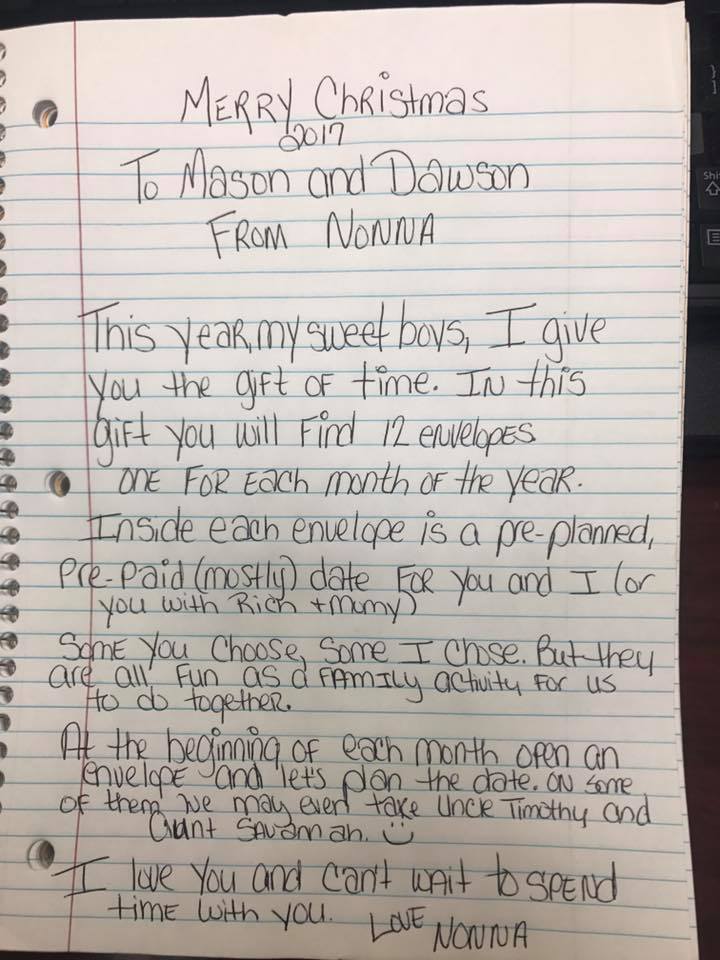 MERRY Christmas
2017
To Mason and Dawson
FROM NONNA
This year, my sweet boys, I give
you the gift of time. In this
gift you will Find 12 envelopes
one for each month of the year.
Inside each envelope is a pre-planned,
Pre-Paid (mostly) date For you and I (or
you with Rich + Mumy)
Some you choose, some I chose. But they
are all fun as a FAMILY activity for us
to do together.
At the beginning of each month open an
envelope and let's plan the date. On some
of them we may even take Uncle Timothy and
Aunt Savannah. ☺
I love you and can't wait to SPEND
time with you. LOVE
NONNA
Shi